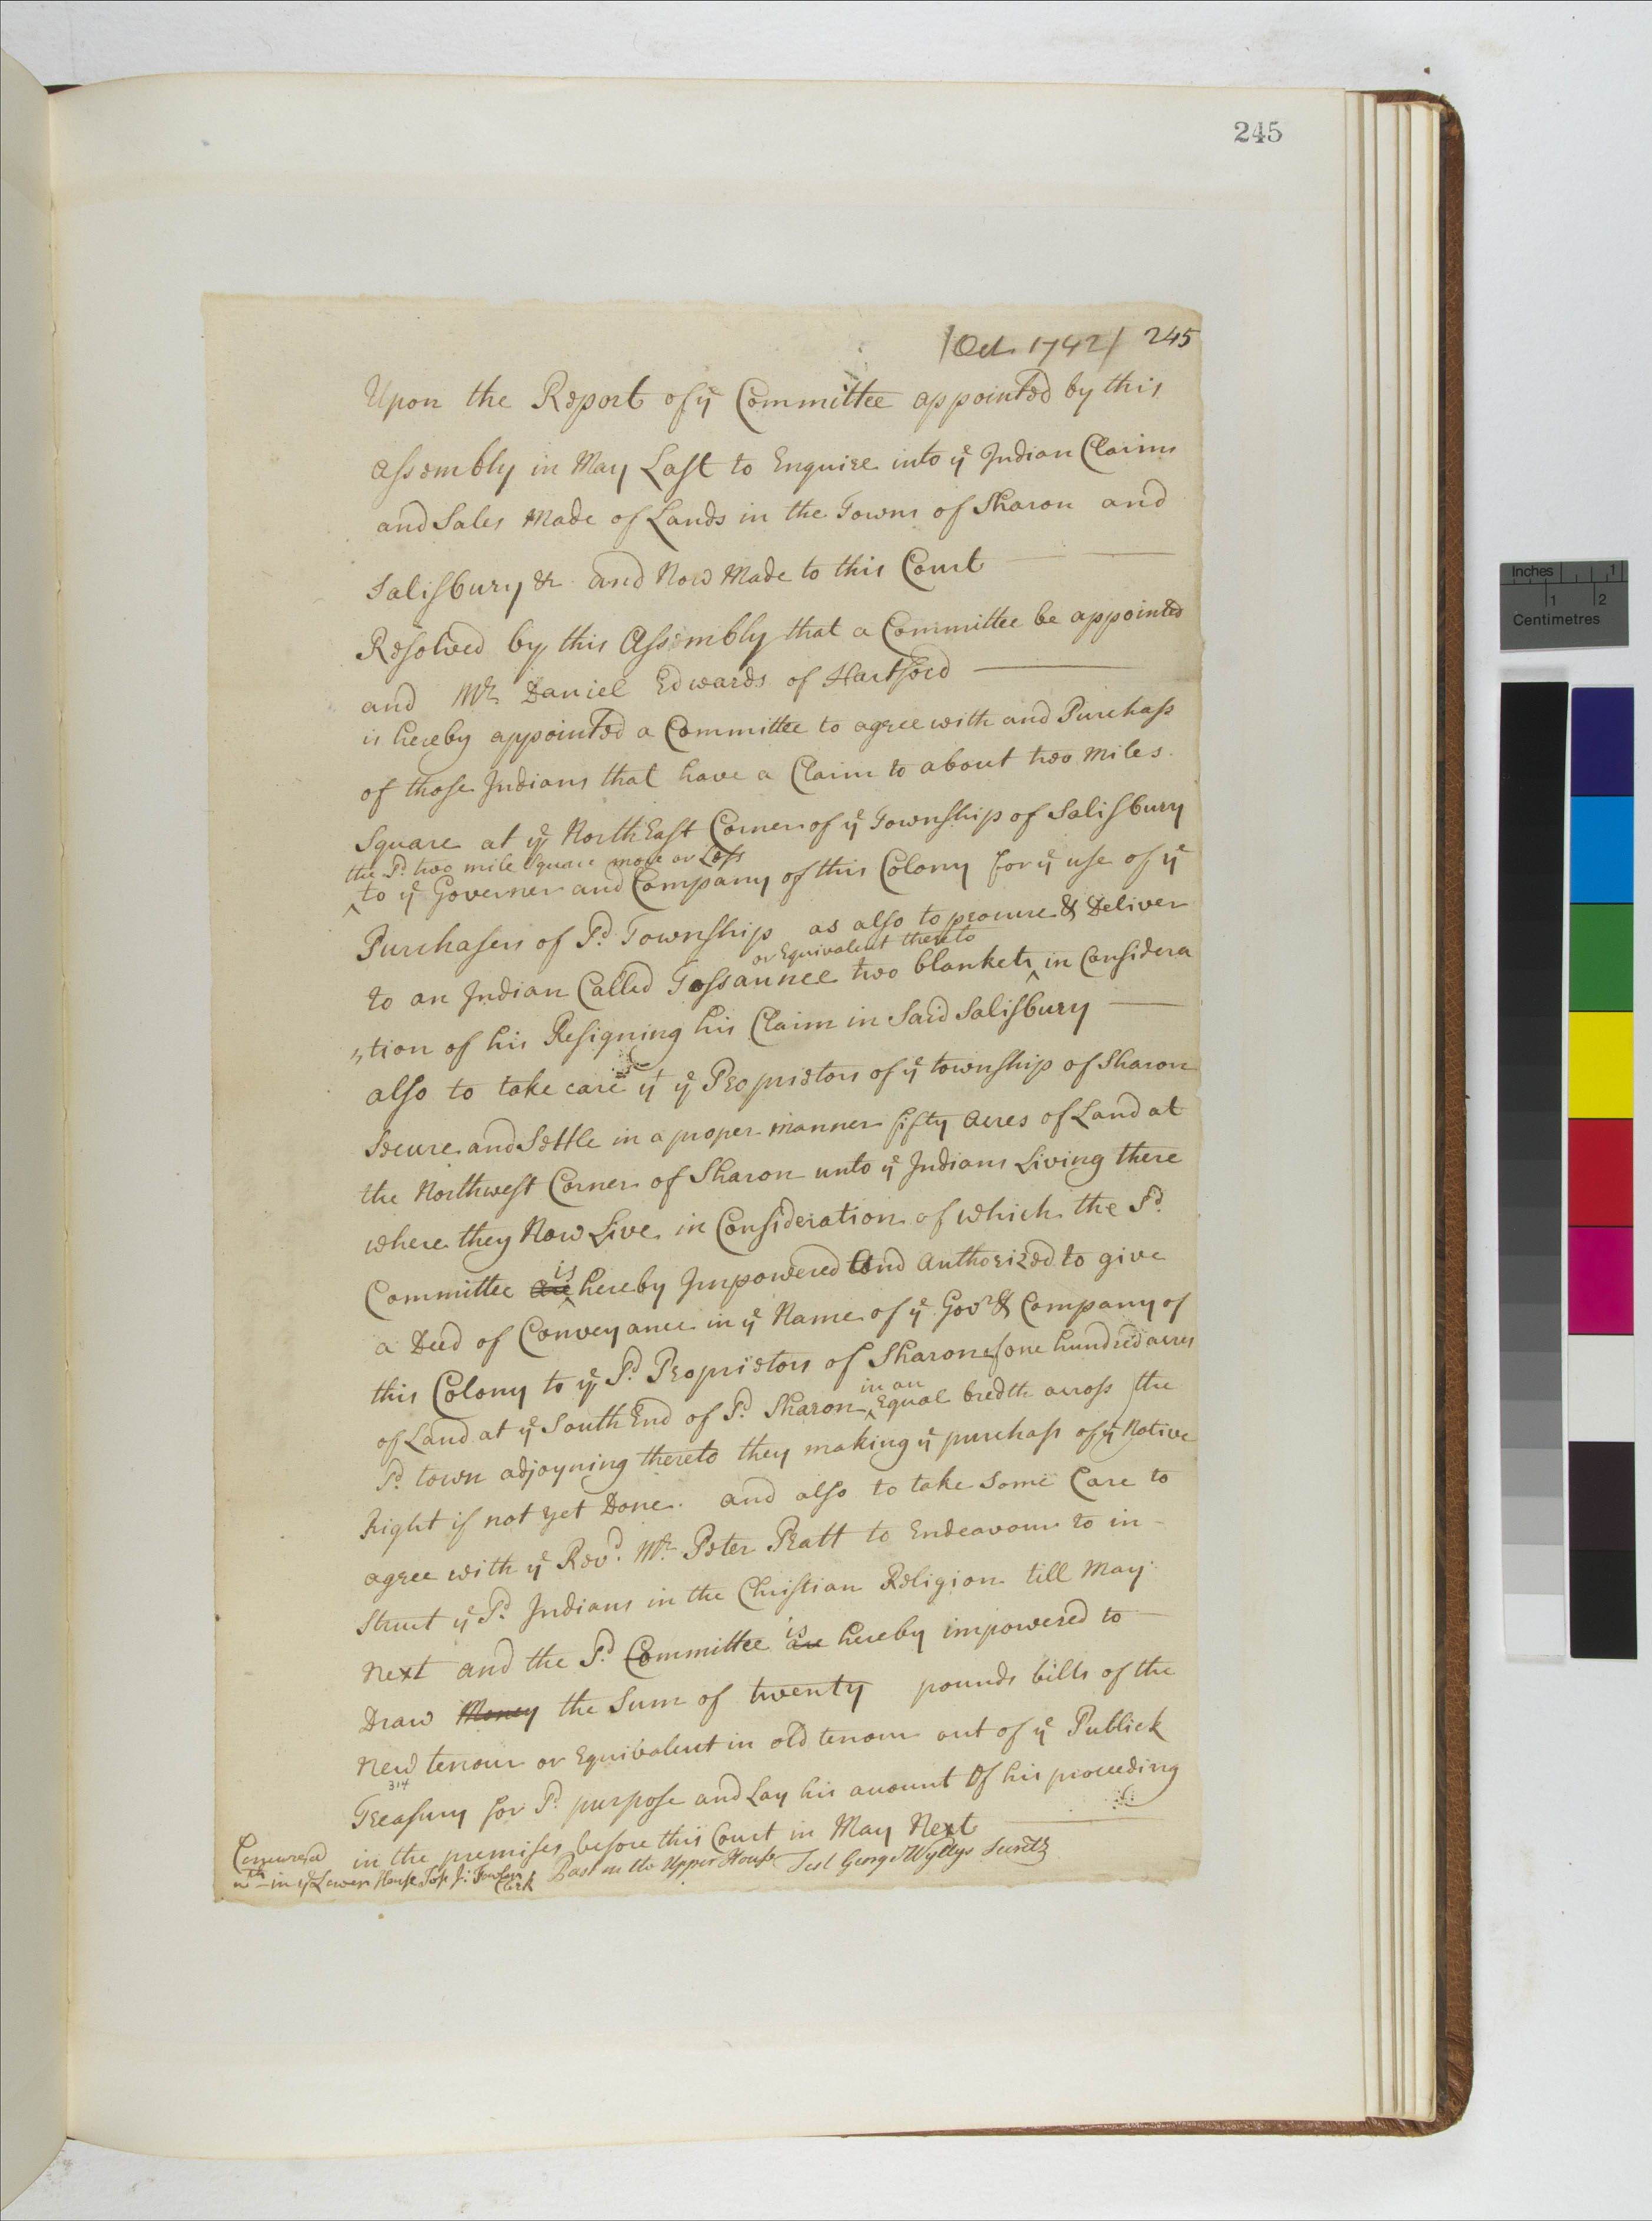 245
/Oct. 1742/ 245
Upon the Report of yͤ Committee appointed by this
assembly in May Last to Enquire into yͤ Indian Claims
and Sales Made of Lands in the Towns of Sharon and
Salisbury &c and Now Made to this Court
Resolved by this Assembly that a Committee be appointed
and Mr Daniel Edwards of Hartford
is hereby appointed a Committee to agree with and Purchass
of those Indians that have a Claim to about two miles
Square at yͤ North East Corner of yͤ Township of Salisbury
the Sd. two mile Square more or Less
^ to yͤ Governer and Company of this Colony for yͤ use of yͤ
Purchasers of Sd. Township as also to procure & Deliver
or Equivalent thereto
to an Indian Called Tossaunee two blankets ^ in Considera
"tion of his Resigning his Claim in Said Salisbury
also to take care yt yͤ Proprietors of yͤ township of Sharon
Secure and Settle in a proper manner fifty acres of Land at
the Northwest Corner of Sharon unto yͤ Indians Living there
where they Now Live in Consideration of which the Sd.
is
Committee are ^ hereby Impowered And Authorized to give
a Deed of Conveyance in yͤ Name of yͤ Govr & Company of
this Colony to yͤ Sd. Proprietors of Sharon of one hundred acres
in an
of Land at yͤ South End of Sd. Sharon ^ Equal bredth across the
Sd. town adjoyning thereto they making yͤ purchass of yͤ Native
Right if not yet Done. and also to take Some Care to
agree with yͤ Revd. Mr. Peter Pratt to Endeavour to in-
struct yͤ Sd. Indians in the Christian Religion till May
is
Next and the Sd. Committee are hereby impowered to
Draw Money the Sum of twenty pounds bills of the
New tenour or Equivalent in old tenour out of yͤ Publick
314
Treasury for Sd. purpose and Lay his account Of his proceeding
in the premises before this Court in May Next
Concurred
wth in yͤ Lower House Test J: Fowler
Clerk
Past in the Upper House Test George Wyllys Secretr
Inches 1
1 2
Centimetres